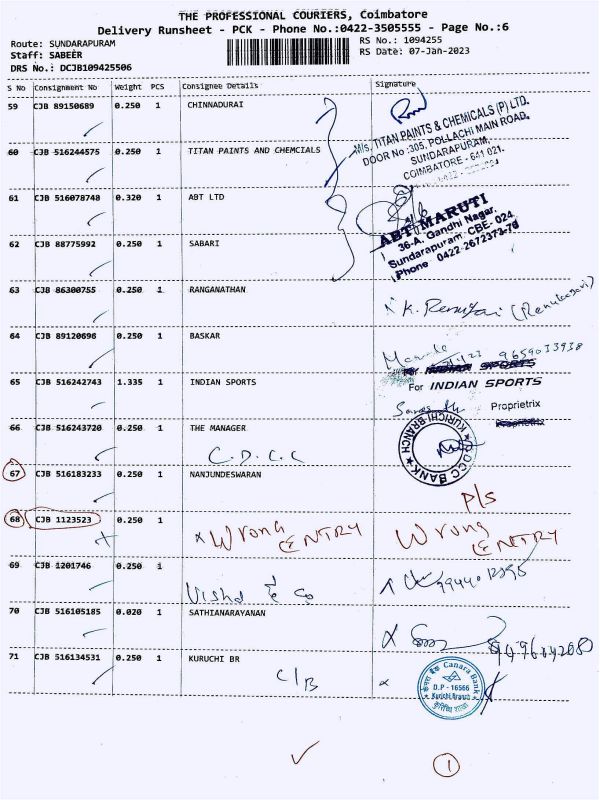 THE PROFESSIONAL COURIERS, Coimbatore
Delivery Runsheet - PCK - Phone No.:0422-3505555 - Page No.:6
Route: SUNDARAPURAM
RS No.: 1094255
Staff: SABEER
RS Date: 07-Jan-2023
DRS No.: DCJB109425506
S No Consignment No Weight PCS Consignee Details Signature
59 CJB 89150689 0.250 1 CHINNADURAI
M/s. TITAN PAINTS & CHEMICALS (P) LTD.
DOOR No :305, POLLACHI MAIN ROAD,
SUNDARAPURAM,
COIMBATORE - 641 021.
60 CJB 516244575 0.250 1 TITAN PAINTS AND CHEMCIALS
61 CJB 516078748 0.320 1 ABT LTD
ABT MARUTI
36-A, Gandhi Nagar,
Sundarapuram, CBE- 024
Phone 0422-2672373-76
62 CJB 88775992 0.250 1 SABARI
63 CJB 86300755 0.250 1 RANGANATHAN
64 CJB 89120696 0.250 1 BASKAR
9659033938
65 CJB 516242743 1.335 1 INDIAN SPORTS
For INDIAN SPORTS
Proprietrix
66 CJB 516243720 0.250 1 THE MANAGER
C.D.C.C
KURICHI-BRANCH
67 CJB 516183233 0.250 1 NANJUNDESWARAN
P/s
68 CJB 1123523 0.250 1
x Wrong ENTRY
Wrong ENTRY
69 CJB 1201746 0.250 1
70 CJB 516105185 0.020 1 SATHIANARAYANAN
71 CJB 516134531 0.250 1 KURUCHI BR
C/B
केनरा बैंक Canara Bank
D.P - 16566
Kurichi Branch
1